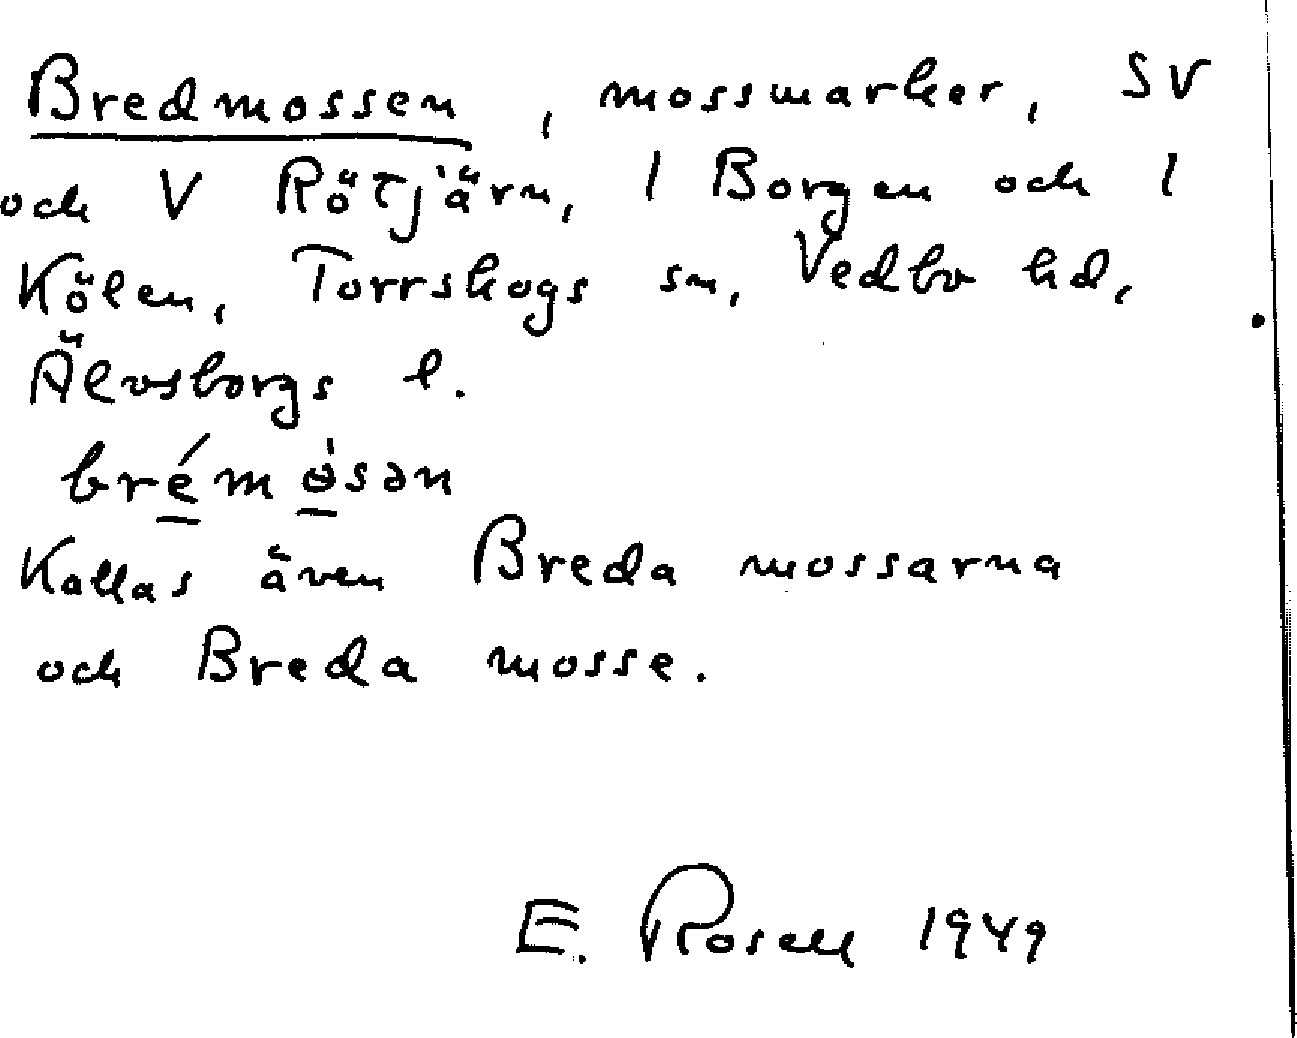 Bredmossen, mossmarker, SV
och V Rötjärn, 1 Borgen och 1
Kölen, Torrskogs sn, Vedbo hd,
Älvsborgs l.
brém ósən
Kallas även Breda mossarna
och Breda mosse.
E. Rosell 1949